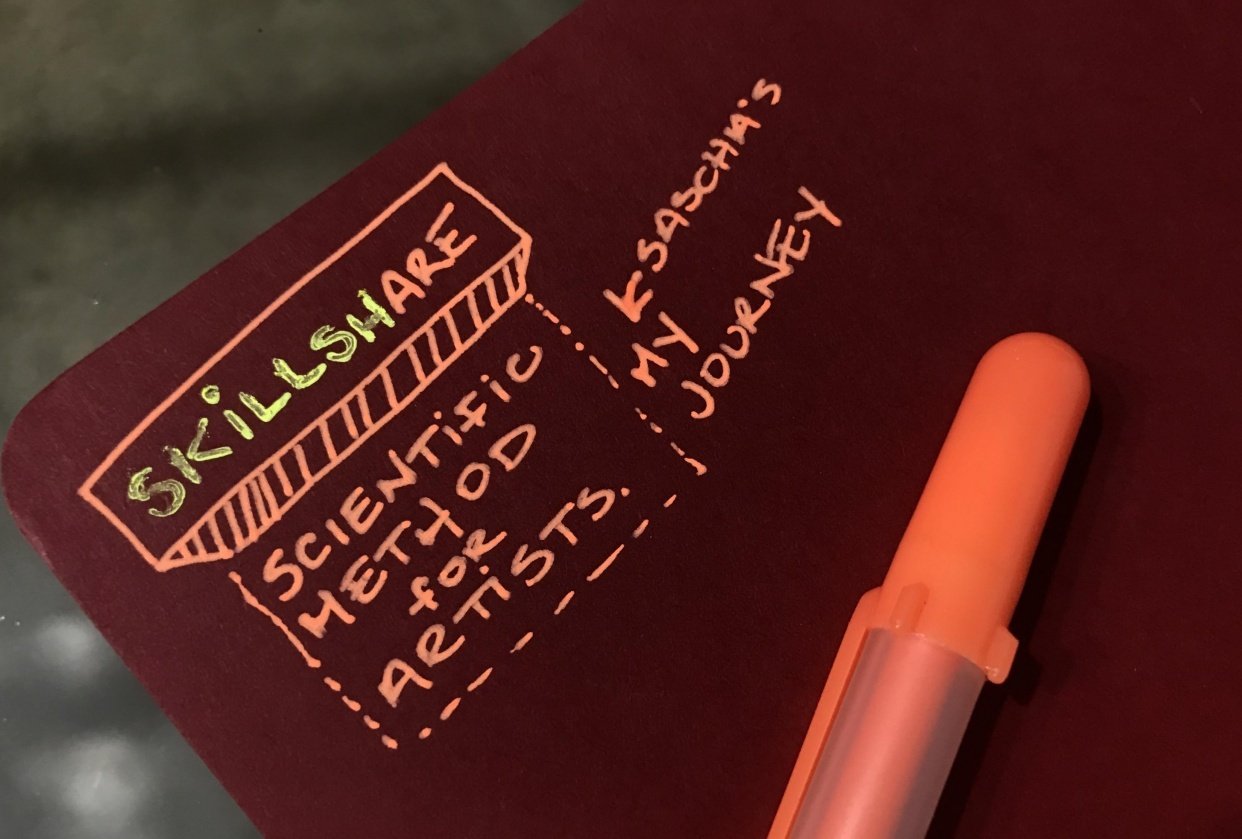 SKiLLSHARE
SCIENTiFiC
METHOD
for
ARTiSTS.
SASCHA's
MY
JOURNEY